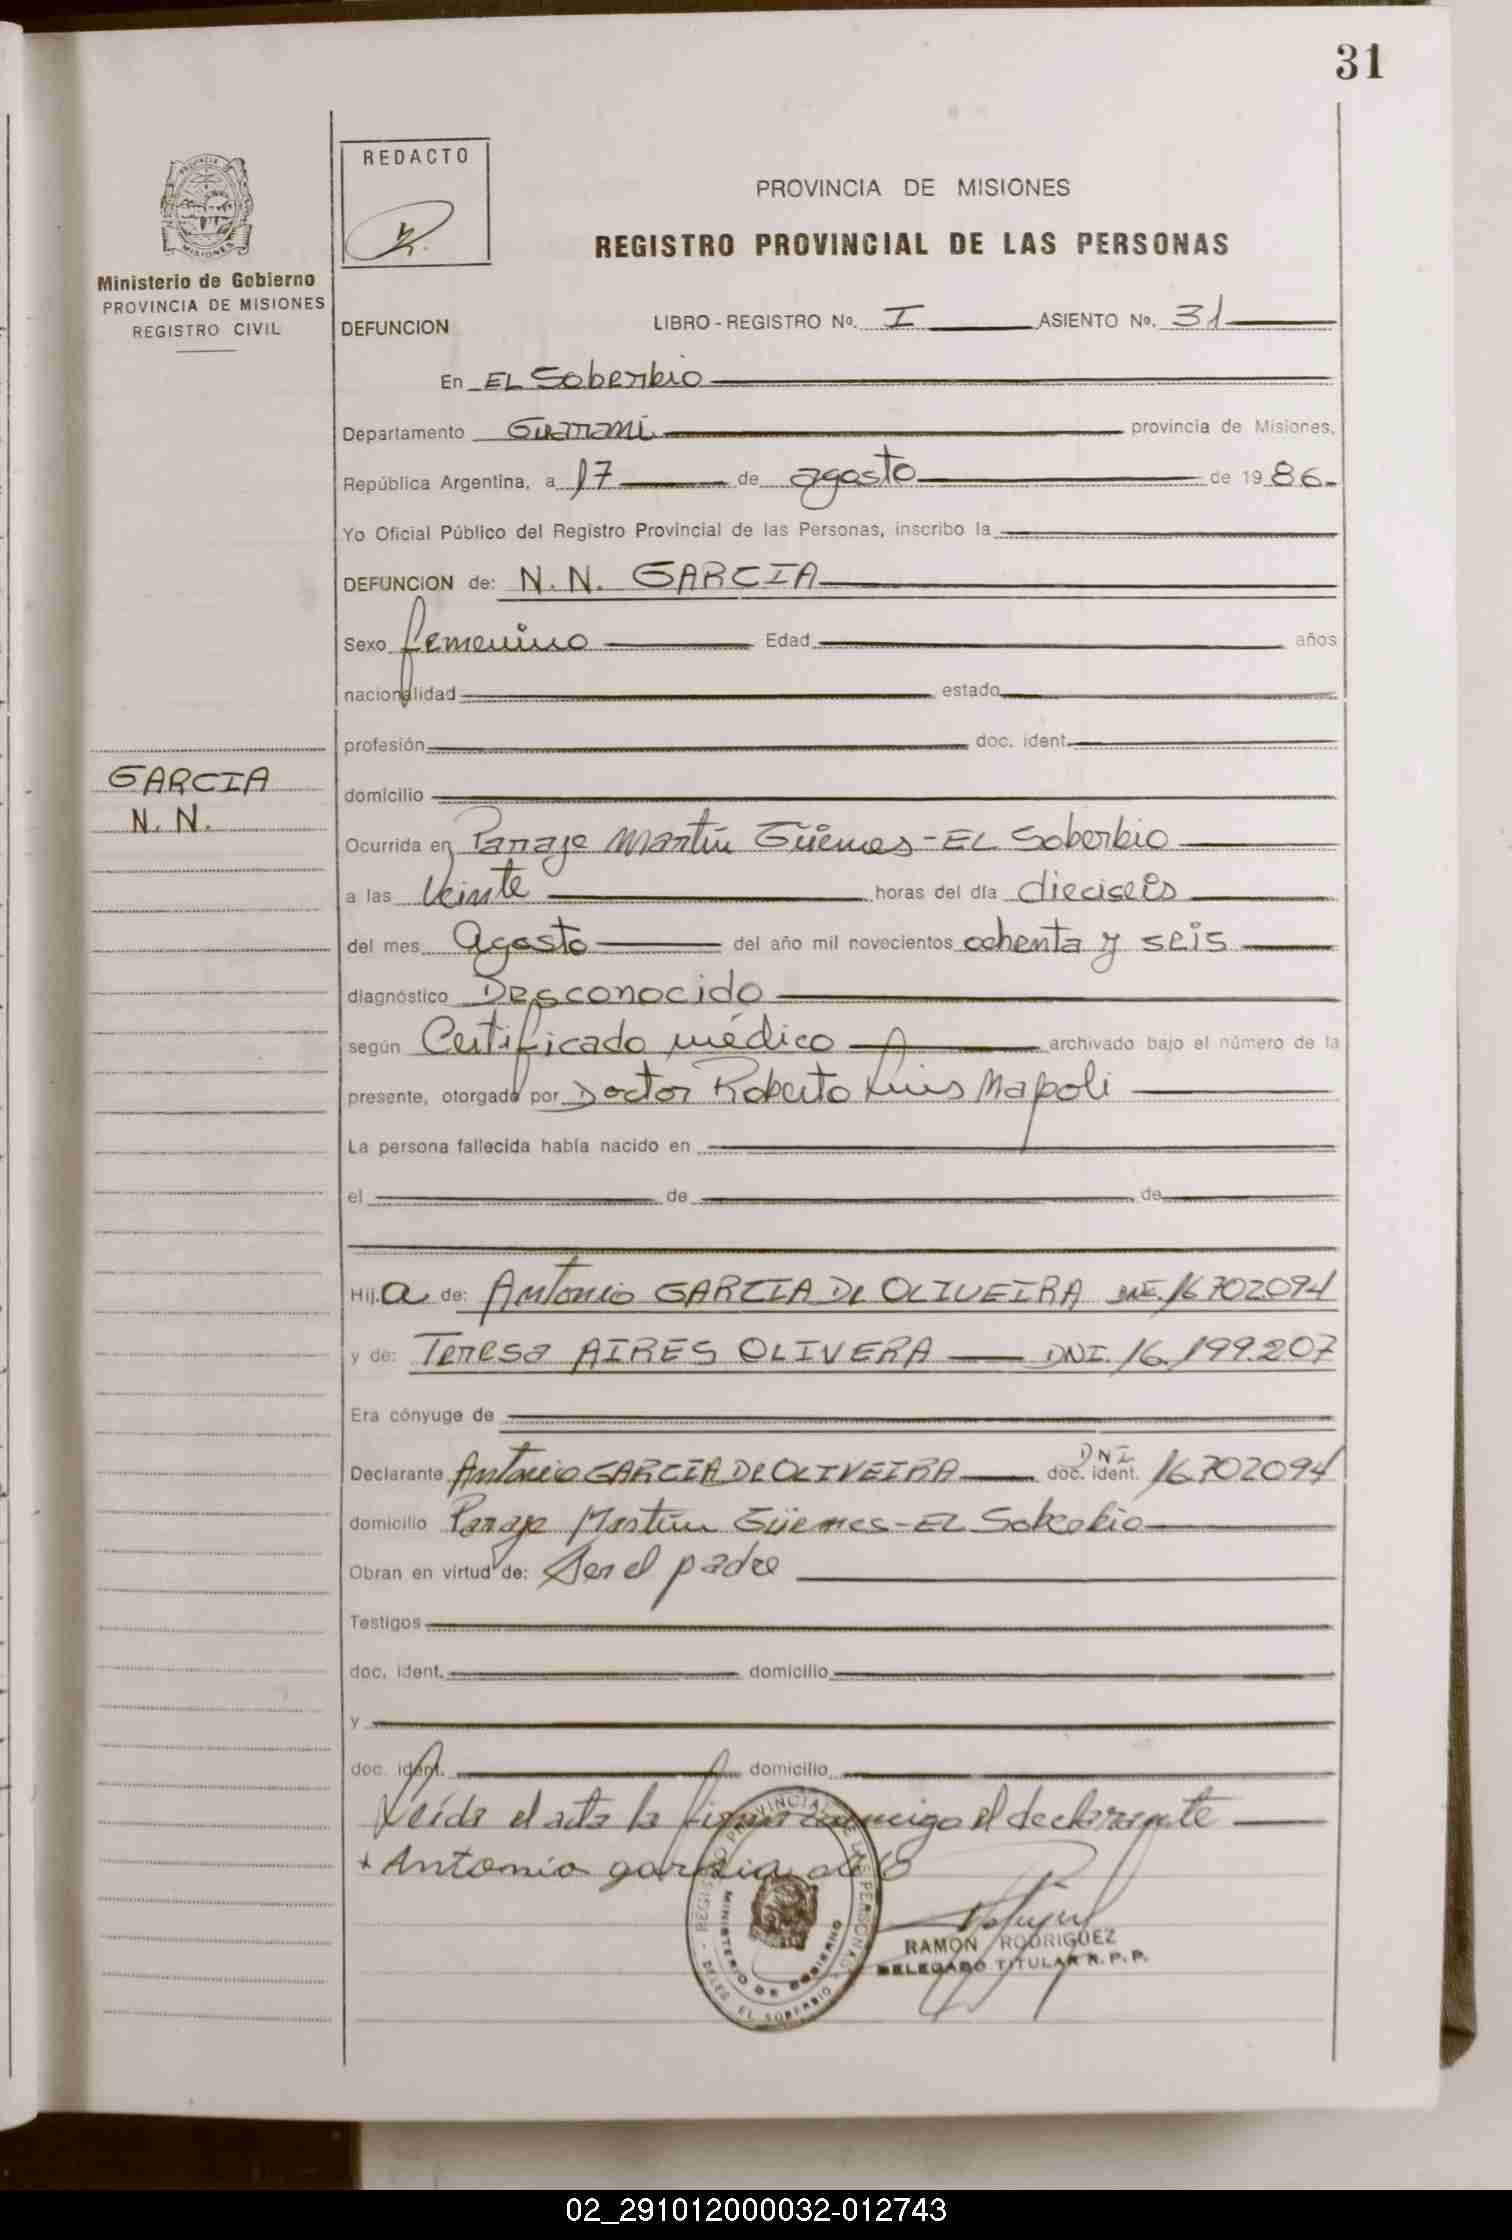 31
REDACTO
PROVINCIA DE MISIONES
REGISTRO PROVINCIAL DE LAS PERSONAS
Ministerio de Gobierno
PROVINCIA DE MISIONES
REGISTRO CIVIL
DEFUNCION LIBRO - REGISTRO Nº. I ASIENTO Nº. 31
En EL Soberbio
Departamento Guarani provincia de Misiones,
República Argentina, a 17 de agosto de 1986.
Yo Oficial Público del Registro Provincial de las Personas, inscribo la
DEFUNCION de: N. N. GARCIA
Sexo femenino Edad años
nacionalidad estado
profesión doc. ident.
GARCIA
N. N.
domicilio
Ocurrida en Paraje Martín Güemes - EL Soberbio
a las Veinte horas del día dieciseis
del mes Agosto del año mil novecientos ochenta y seis
diagnóstico Desconocido
según Certificado médico archivado bajo el número de la
presente, otorgado por Doctor Roberto Luis Napoli
La persona fallecida había nacido en
el de de
Hija de: Antonio GARCIA De OLIVEIRA DNI. 16.702.094
y de: Teresa AIRES OLIVERA DNI. 16.199.207
Era cónyuge de
Declarante Antonio GARCIA De OLIVEIRA doc. ident. DNI 16.702094
domicilio Paraje Martín Güemes - EL Soberbio
Obran en virtud de: Ser el padre
Testigos
doc. ident. domicilio
y
doc. ident. domicilio
Leída el acta la firma conmigo el declarante
+ Antonio garcia
REGISTRO PROVINCIAL DE LAS PERSONAS
MINISTERIO DE GOBIERNO
DELEG. EL SOBERBIO
RAMON RODRIGUEZ
DELEGADO TITULAR R. P. P.
02_291012000032-012743